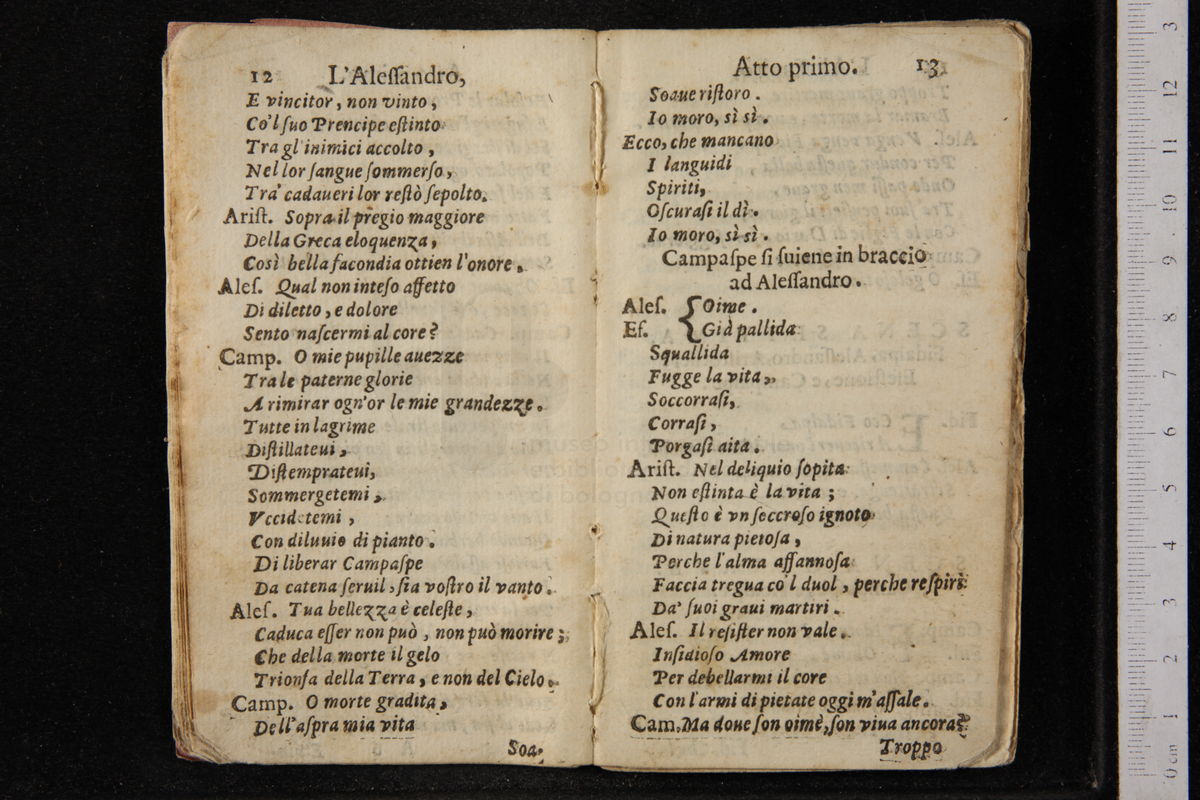 12 L'Alessandro,
E vincitor, non vinto,
Co'l suo Prencipe estinto
Tra gl'inimici accolto,
Nel lor sangue sommerso,
Trà cadaueri lor restò sepolto.
Arist. Sopra il pregio maggiore
Della Greca eloquenza,
Così bella facondia ottien l'onore.
Ales. Qual non inteso affetto
Di diletto, e dolore
Sento nascermi al core?
Camp. O mie pupille auezze
Tra le paterne glorie
A rimirar ogn'or le mie grandezze.
Tutte in lagrime
Distillateui,
Distemprateui,
Sommergetemi,
Vccidetemi,
Con diluuio di pianto.
Di liberar Campaspe
Da catena seruil, sia vostro il vanto.
Ales. Tua bellezza è celeste,
Caduca esser non può, non può morire;
Che della morte il gelo
Trionfa della Terra, e non del Cielo.
Camp. O morte gradita,
Dell'aspra mia vita
Soa-
Atto primo. 13
Soaue ristoro.
Io moro, sì sì.
Ecco, che mancano
I languidi
Spiriti,
Oscurasi il dì.
Io moro, sì sì.
Campaspe si suiene in braccio
ad Alessandro.
Ales. { Oime.
Ef. { Già pallida
Squallida
Fugge la vita,
Soccorrasi,
Corrasi,
Porgasi aita.
Arist. Nel deliquio sopita
Non estinta è la vita;
Questo è vn soccroso ignoto
Di natura pietosa,
Perche l'alma affannosa
Faccia tregua co'l duol, perche respiri
Da' suoi graui martiri.
Ales. Il resister non vale.
Insidioso Amore
Per debellarmi il core
Con l'armi di pietate oggi m'assale.
Cam. Ma doue son oimè, son viua ancora?
Troppo
0 cm 1 2 3 4 5 6 7 8 9 10 11 12 3